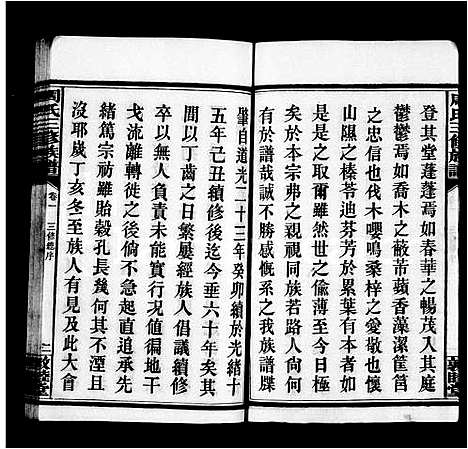 登其堂蓬蓬焉如春華之暢茂入其庭
鬱鬱焉如喬木之蔽芾蘋香藻潔筐筥
之忠信也伐木嚶鳴桑梓之敬愛也懷
山隰之榛苓迪芬芳於累葉有本者如
是是之取爾雖然世之偷薄至今日極
矣於本宗弗之親視同族若路人尙何
有於譜哉誠不勝感慨系之我族譜牒
肇自道光二十三年癸卯續於光緒十
五年己丑續修後迄今垂六十年矣其
間以丁齒之日繁屢經族人倡議續修
卒以無人負責未能實現値徧地干
戈流離轉徙之後倘不急起直追承先
緒篤宗祊雖貽穀孔長幾何其不湮且
沒耶歲丁亥冬至族人有見及此大會
周氏三修族譜
卷一
三修總序
二
敦睦堂